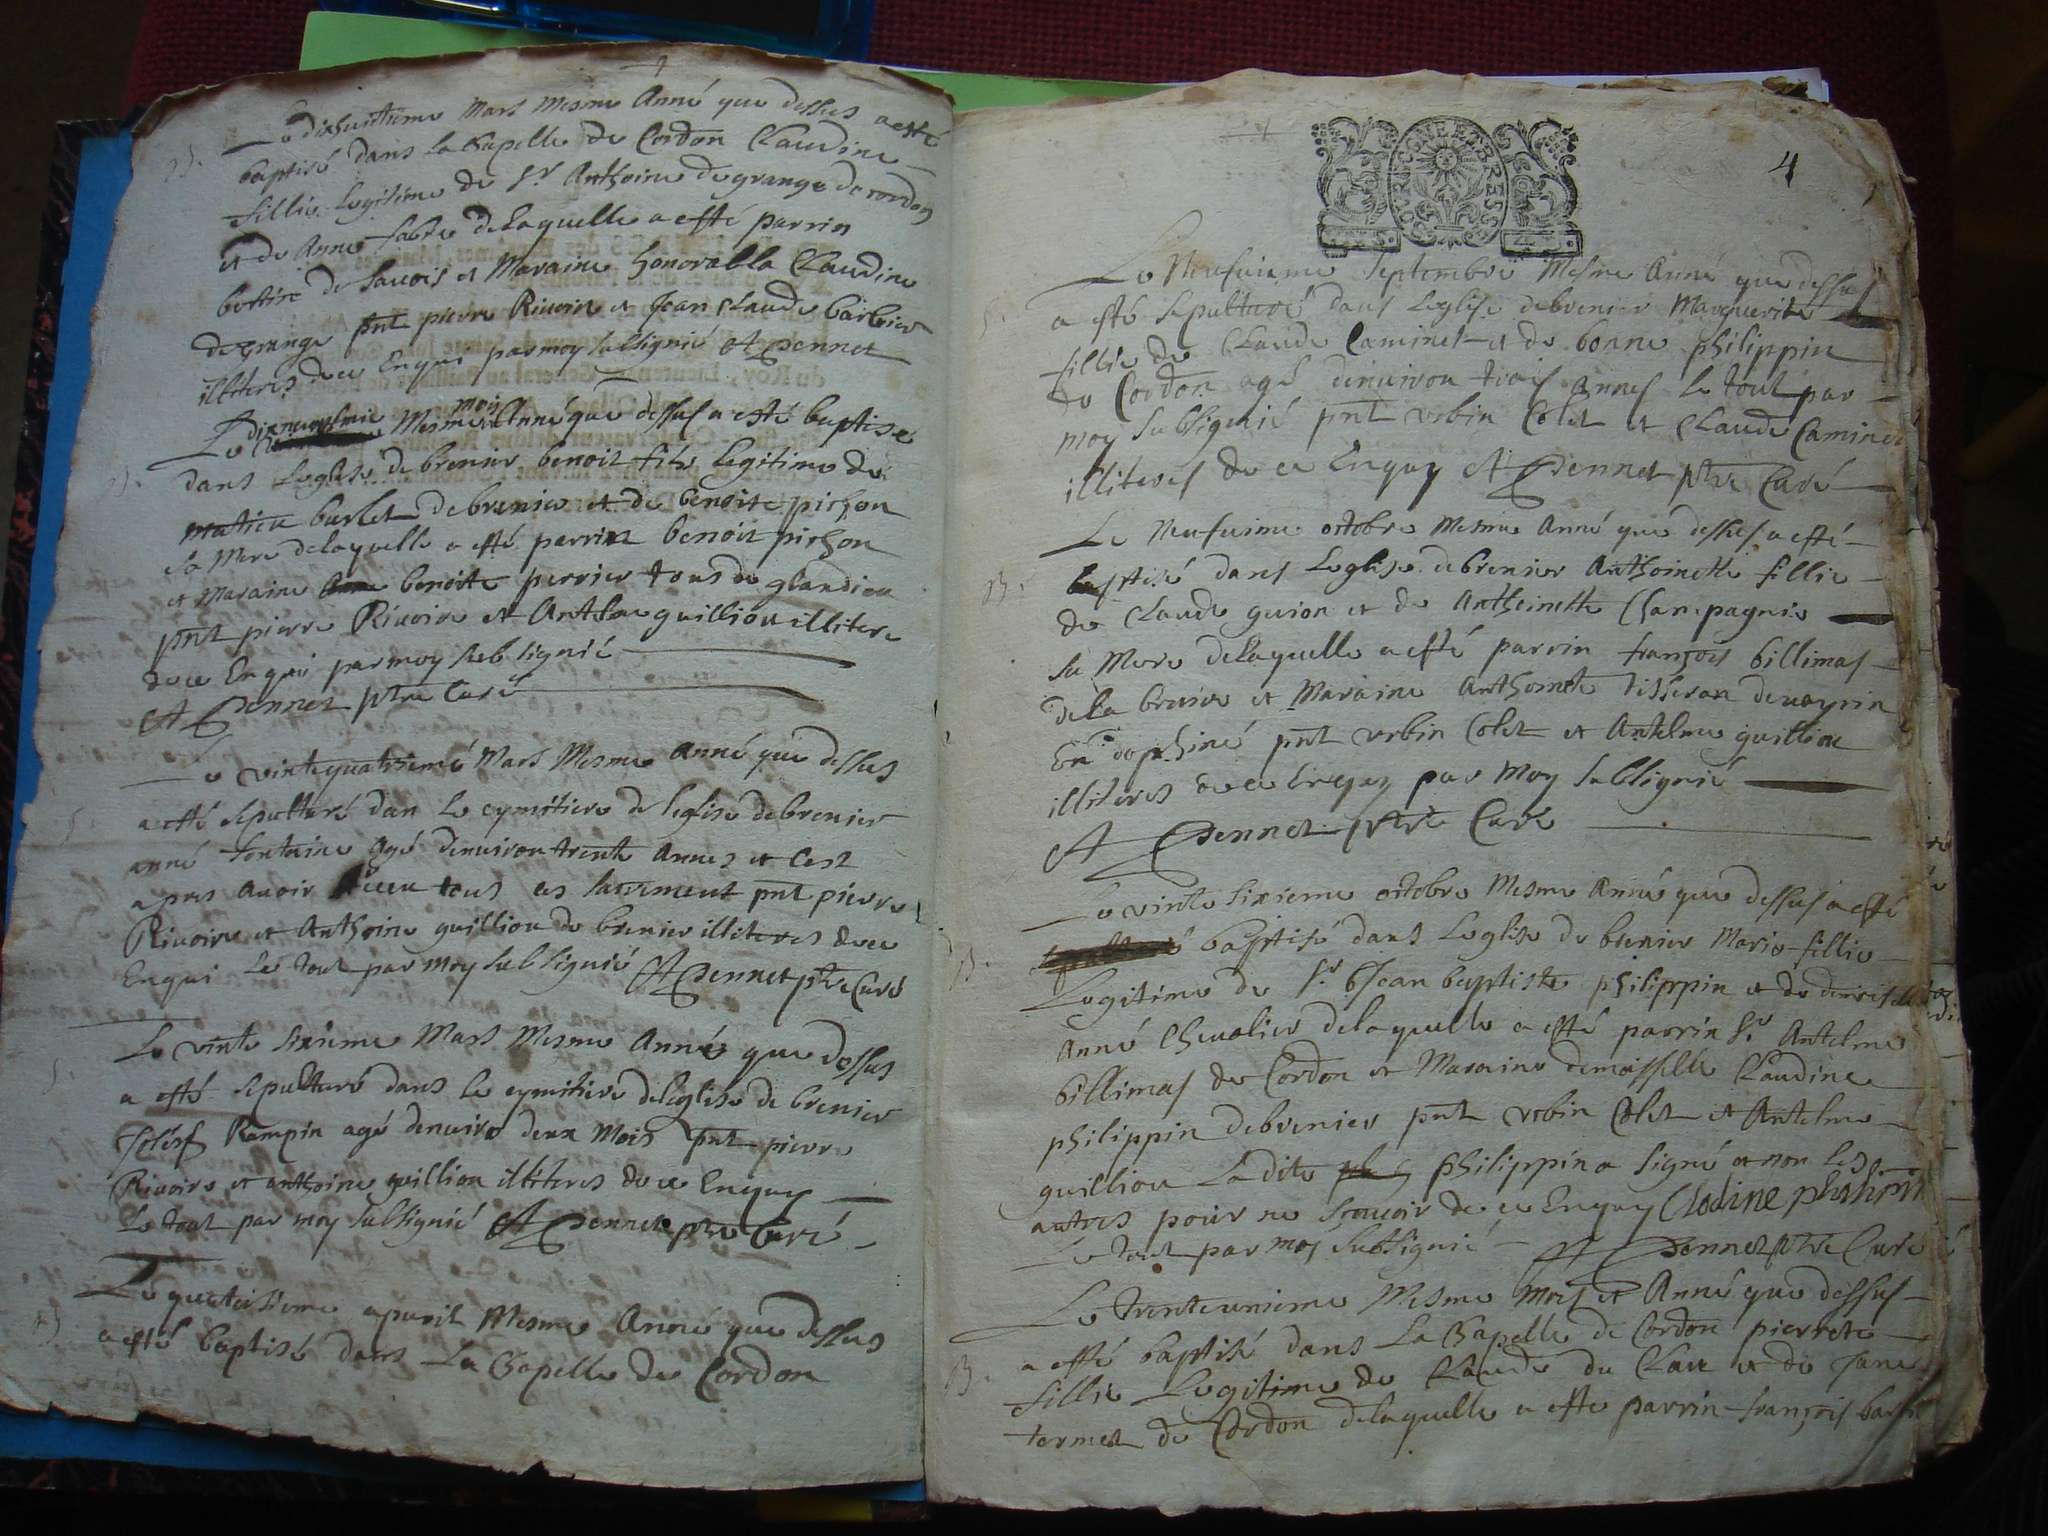 B.
Le dixhuitieme Mars Mesme Anné que dessus a esté
baptisé dans la Chapelle de Cordon Claudine
fillie Legitime de Sr Anthoine degrange de cordon
et de Anne fabre delaquelle a esté parrin
de Sauois et Maraine honorabla Claudine
degrange pnt pierre Riuoire et Jean Claude barbier
illiteres de ce Enquis par moy subsignié A Dennet
B.
Le dixneuuieme Mesme moy Anné que dessus a esté baptisé
dans Leglise de brenier benoit fils legitime de
matieu burlet de brenier et de benoite pichon
sa Mere delaquelle a esté parrin benoit pichon
et Maraine benoite perrier tous de glandieu
pnt pierre Riuoire et Antelme guilliou illitere
de ce Enqui par moy subsignié
A Dennet ptre Curé
S.
Le vintequatrieme Mars Mesme Anné que dessus
a esté sepulturé dan Le cymitiere de leglise de brenier
anné fontaine agé denuiron trente Annes et Cest
apres auoir Riceu tous ces sacrement pnt pierre
Riuoire et Anthoine guilliou de brenier illiteres de ce
Enqui Le tout par moy subsignié A Dennet ptre Curé
S.
Le vinte sixieme Mars Mesme Anné que dessus
a esté sepulturé dans Le cymitiere de Leglise de brenier
Josesf Rampin agé denuiro deux Mois pnt pierre
Riuoire et anthoine guilliou illiteres de ce Enquy
Le tout par moy subsignié A Dennet ptre Curé
B.
Le quatorsieme apuril Mesme Anné que dessus
a esté baptisé dans La Chapelle de Cordon
MOYEN GENE ET BRESSE
4
S.
Le Neufuieme Septembre Mesme Anné que dessus
a esté sepulturé dans Leglise de brenier Marguerite
fillie de Claude Caminet et de bonne philippin
de Cordon agé denuiron trois Annes Le tout par
moy subsignié pnt vrbin Colet et Claude Caminet
illiteres de ce Enquy A Dennet ptre Curé
B.
Le Neufuieme octobre Mesme Anné que dessus a esté
baptisé dans Leglise de brenier Anthoinette fillie
de Claude guion et de Anthoinette Champagnie
sa Mere delaquelle a esté parrin françois billimas
de La bruire et Maraine Anthoinete Tisseran de ueyrin
En dophiné pnt vrbin Colet et Antelme guilliou
illiteres de ce Enquy par Moy subsignié
A Dennet ptre Curé
B.
Le vinte sixieme octobre Mesme Anné que dessus a esté
baptisé dans Leglise de brenier Marie fillie
Legitime de Sr Jean baptiste philippin et de demoiselle
Anné Cheualier delaquelle a esté parrin Sr Antelme
billimas de Cordon et Maraine demoisselle Claudine
philippin de brenier pnt vrbin Colet et Antelme
guilliou La dite philippin a signé et non Les
autres pour ne scauoir de ce Enquy Clodine philippin
Le tout par moy subsignié A Dennet ptre Curé
B.
Le Trenteunieme Mesme Mois et Anné que dessus
a esté baptisé dans La Chapelle de Cordon pierrete
fillie Legitime de Claude du Clau et de Jane
termet de Cordon delaquelle a esté parrin françois